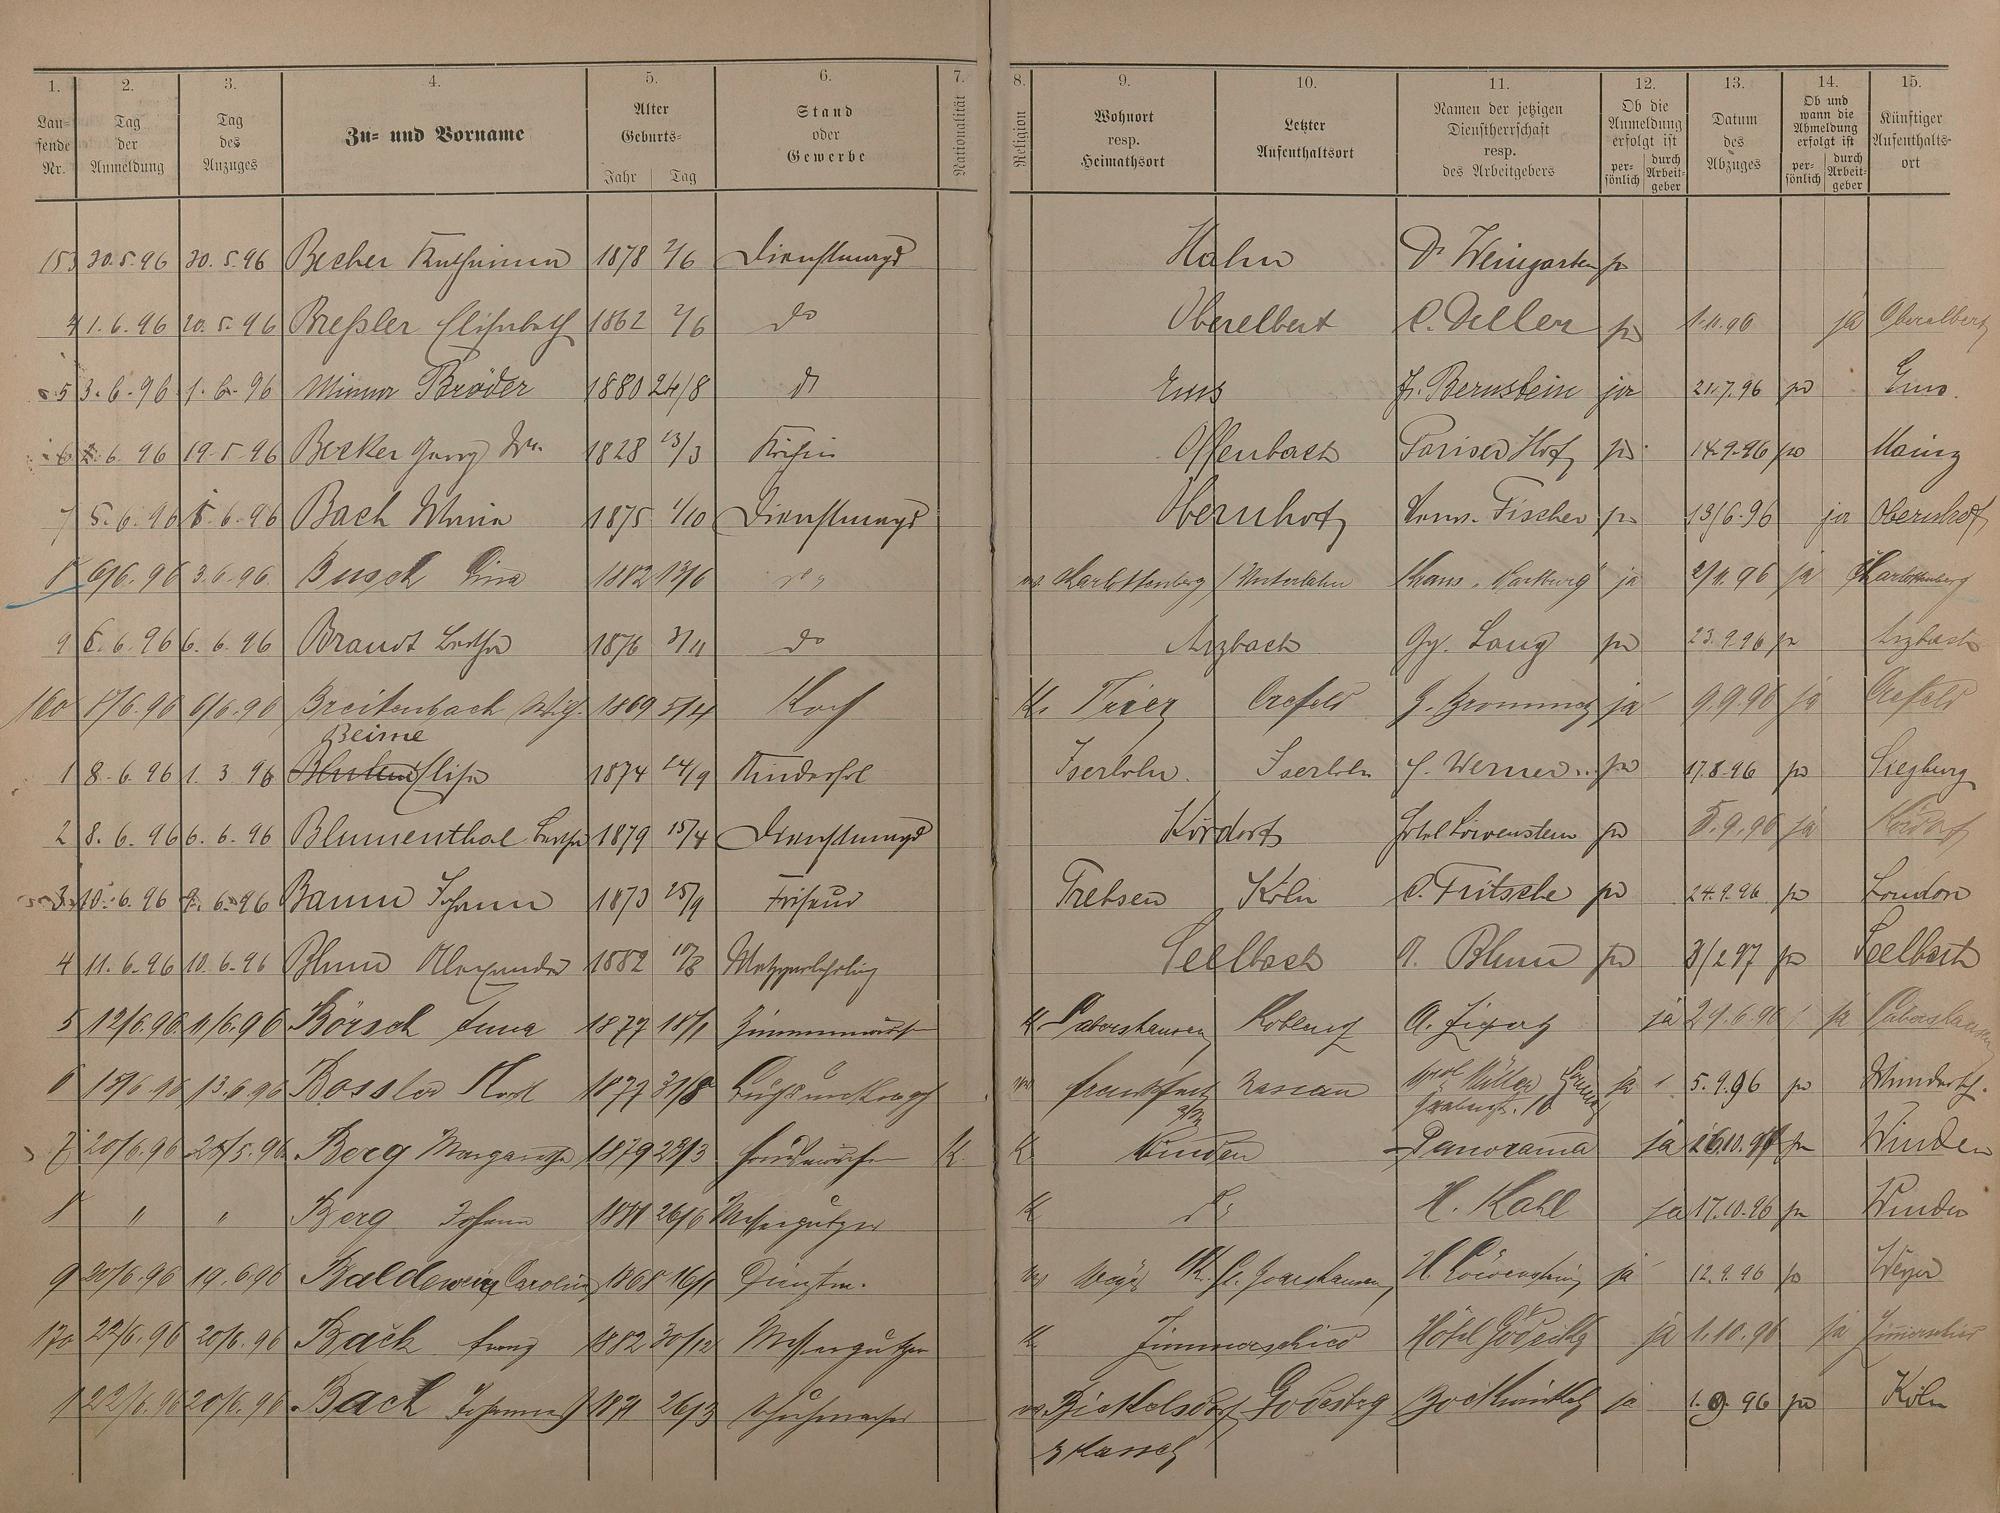 1. 2. 3. 4. 5. 6. 7. 8. 9. 10. 11. 12. 13. 14. 15.
Lau-
fende
Nr.
Tag
der
Anmeldung
Tag
des
Anzuges
Zu- und Vorname
Alter
Geburts-
Jahr Tag
Stand
oder
Gewerbe
Nationalität
Religion
Wohnort
resp.
Heimathsort
Letzter
Aufenthaltsort
Namen der jetzigen
Dienstherrschaft
resp.
des Arbeitgebers
Ob die
Anmeldung
erfolgt ist
per-
sönlich
durch
Arbeit-
geber
Datum
des
Abzuges
Ob und
wann die
Abmeldung
erfolgt ist
per-
sönlich
durch
Arbeit-
geber
Künftiger
Aufenthalts-
ort
153 30.5.96 30.5.96 Becher Katharina 1878 2/6 Dienstmagd Hahn Dr Weingarten ja
4 1.6.96 20.5.96 Breßler Elisabeth 1862 2/6 do Oberelbert C. Deller ja 1.11.96 ja Oberelbert
5 3.6.96 1.6.96 Minna Bröder 1880 24/8 do Ems Fr. Bernstein ja 21.7.96 ja Ems.
6 2.6.96 19.5.96 Becker Georg 1828 13/3 Offenbach Pariser Hof ja 14.9.96 ja Mainz
7 5.6.96 5.6.96 Bach Maria 1875 1/10 Dienstmagd Obernhof Fischer ja 13/6.96 ja Obernhof
8 6/6.96 3.6.96 Busch Lina 1882 13/6 do Charlottenberg / Unterlahn Haus "Wartburg" ja 2/11.96 ja Charlottenberg
9 6.6.96 6.6.96 Brandt Bertha 1876 3/11 do Arzbach Gg. Lang ja 23.9.96 ja Arzbach
160 8/6.96 6/6.96 Breitenbach Wilh. 1869 5/4 Koch K. Trier Crefeld ja 9.9.96 ja Crefeld
Beime
1 8.6.96 1.3.96 Elise 1874 24/9 Kinderfrl Iserlohn. Iserlohn Werner ja 17.8.96 ja Siegburg
2 8.6.96 6.6.96 Blumenthal Bertha 1879 15/4 Dienstmagd Kördorf Hotel Löwenstein ja 5.9.96 ja Kördorf
3 10.6.96 9.6.96 Baum Johann 1873 25/9 Friseur Trebsen Köln C. Fritsche ja 24.9.96 ja London
4 11.6.96 10.6.96 Blum Alexander 1882 10/8 Metzgerlehrling Seelbach A. Blum ja 3/2 97 ja Seelbach
5 12/6.96 11/6.96 Börsch Anna 1877 18/1 Zimmermädch K Koblenz A. ja 29.6.96 ja
6 15/6.96 13.6.96 Bossler Karl 1877 31/8 Frankfurt a/M Nassau Müller Grabenstr. 10 ja 5.9.96 ja
7 20/6.96 25/5.96 Berg Margaretha 1879 29/3 K. K Winden Panorama ja 16.10.96 ja Winden
8 " " Berg Johann 1881 26/6 Messerputzer K do H. Kahl ja 17.10.96 ja Winden
9 20/6.96 19.6.96 Baldewein Caroline 1868 16/1 Dienstm. Weyer Kr. St. Goarshausen H. Löwenstein ja 12.9.96 ja Weyer
170 22/6.96 20/6.96 Back Franz 1882 30/12 Messerputzer K Zimmerschied Hôtel Gödecke ja 1.10.96 ja Zimmerschied
1 22/6.96 20/6.96 Bach Johannes 1871 26/3 Schuhmacher Godesbg ja 1.9.96 ja Köln